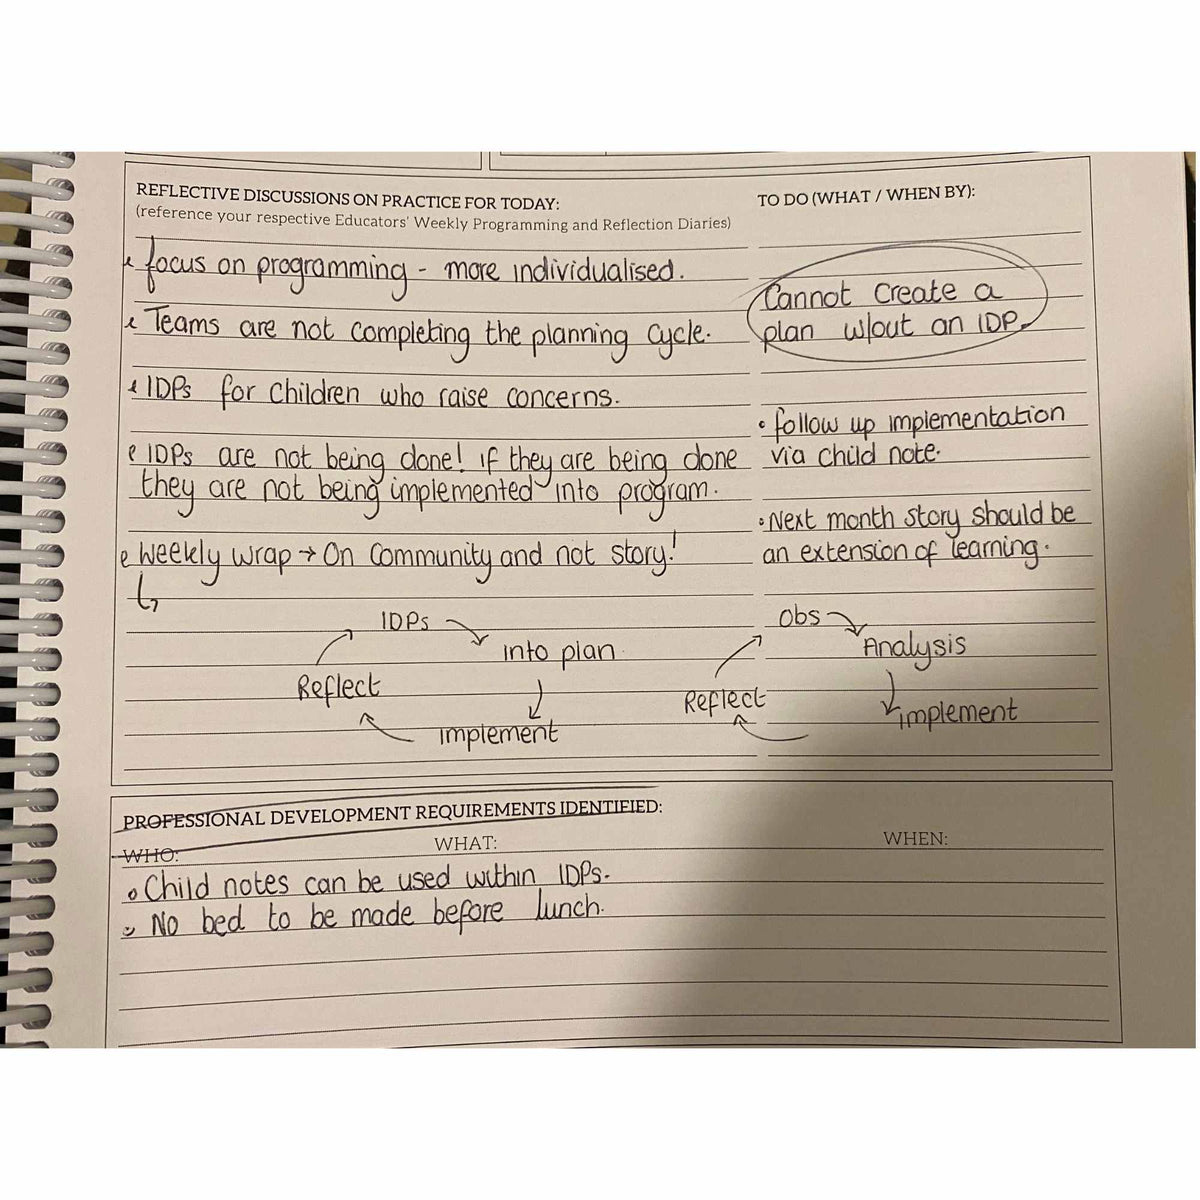 REFLECTIVE DISCUSSIONS ON PRACTICE FOR TODAY:
(reference your respective Educators' Weekly Programming and Reflection Diaries)
focus on programming - more individualised.
Teams are not completing the planning cycle.
IDPs for children who raise concerns.
IDPs are not being done! if they are being done
they are not being implemented into program.
Weekly wrap → On Community and not story!
IDPs
into plan
implement
Reflect
TO DO (WHAT / WHEN BY):
Cannot create a
plan w/out an IDP.
• follow up implementation
via child note.
• Next month story should be
an extension of learning.
Obs
Analysis
implement
Reflect
PROFESSIONAL DEVELOPMENT REQUIREMENTS IDENTIFIED:
WHO: WHAT: WHEN:
• Child notes can be used within IDPs.
• No bed to be made before lunch.